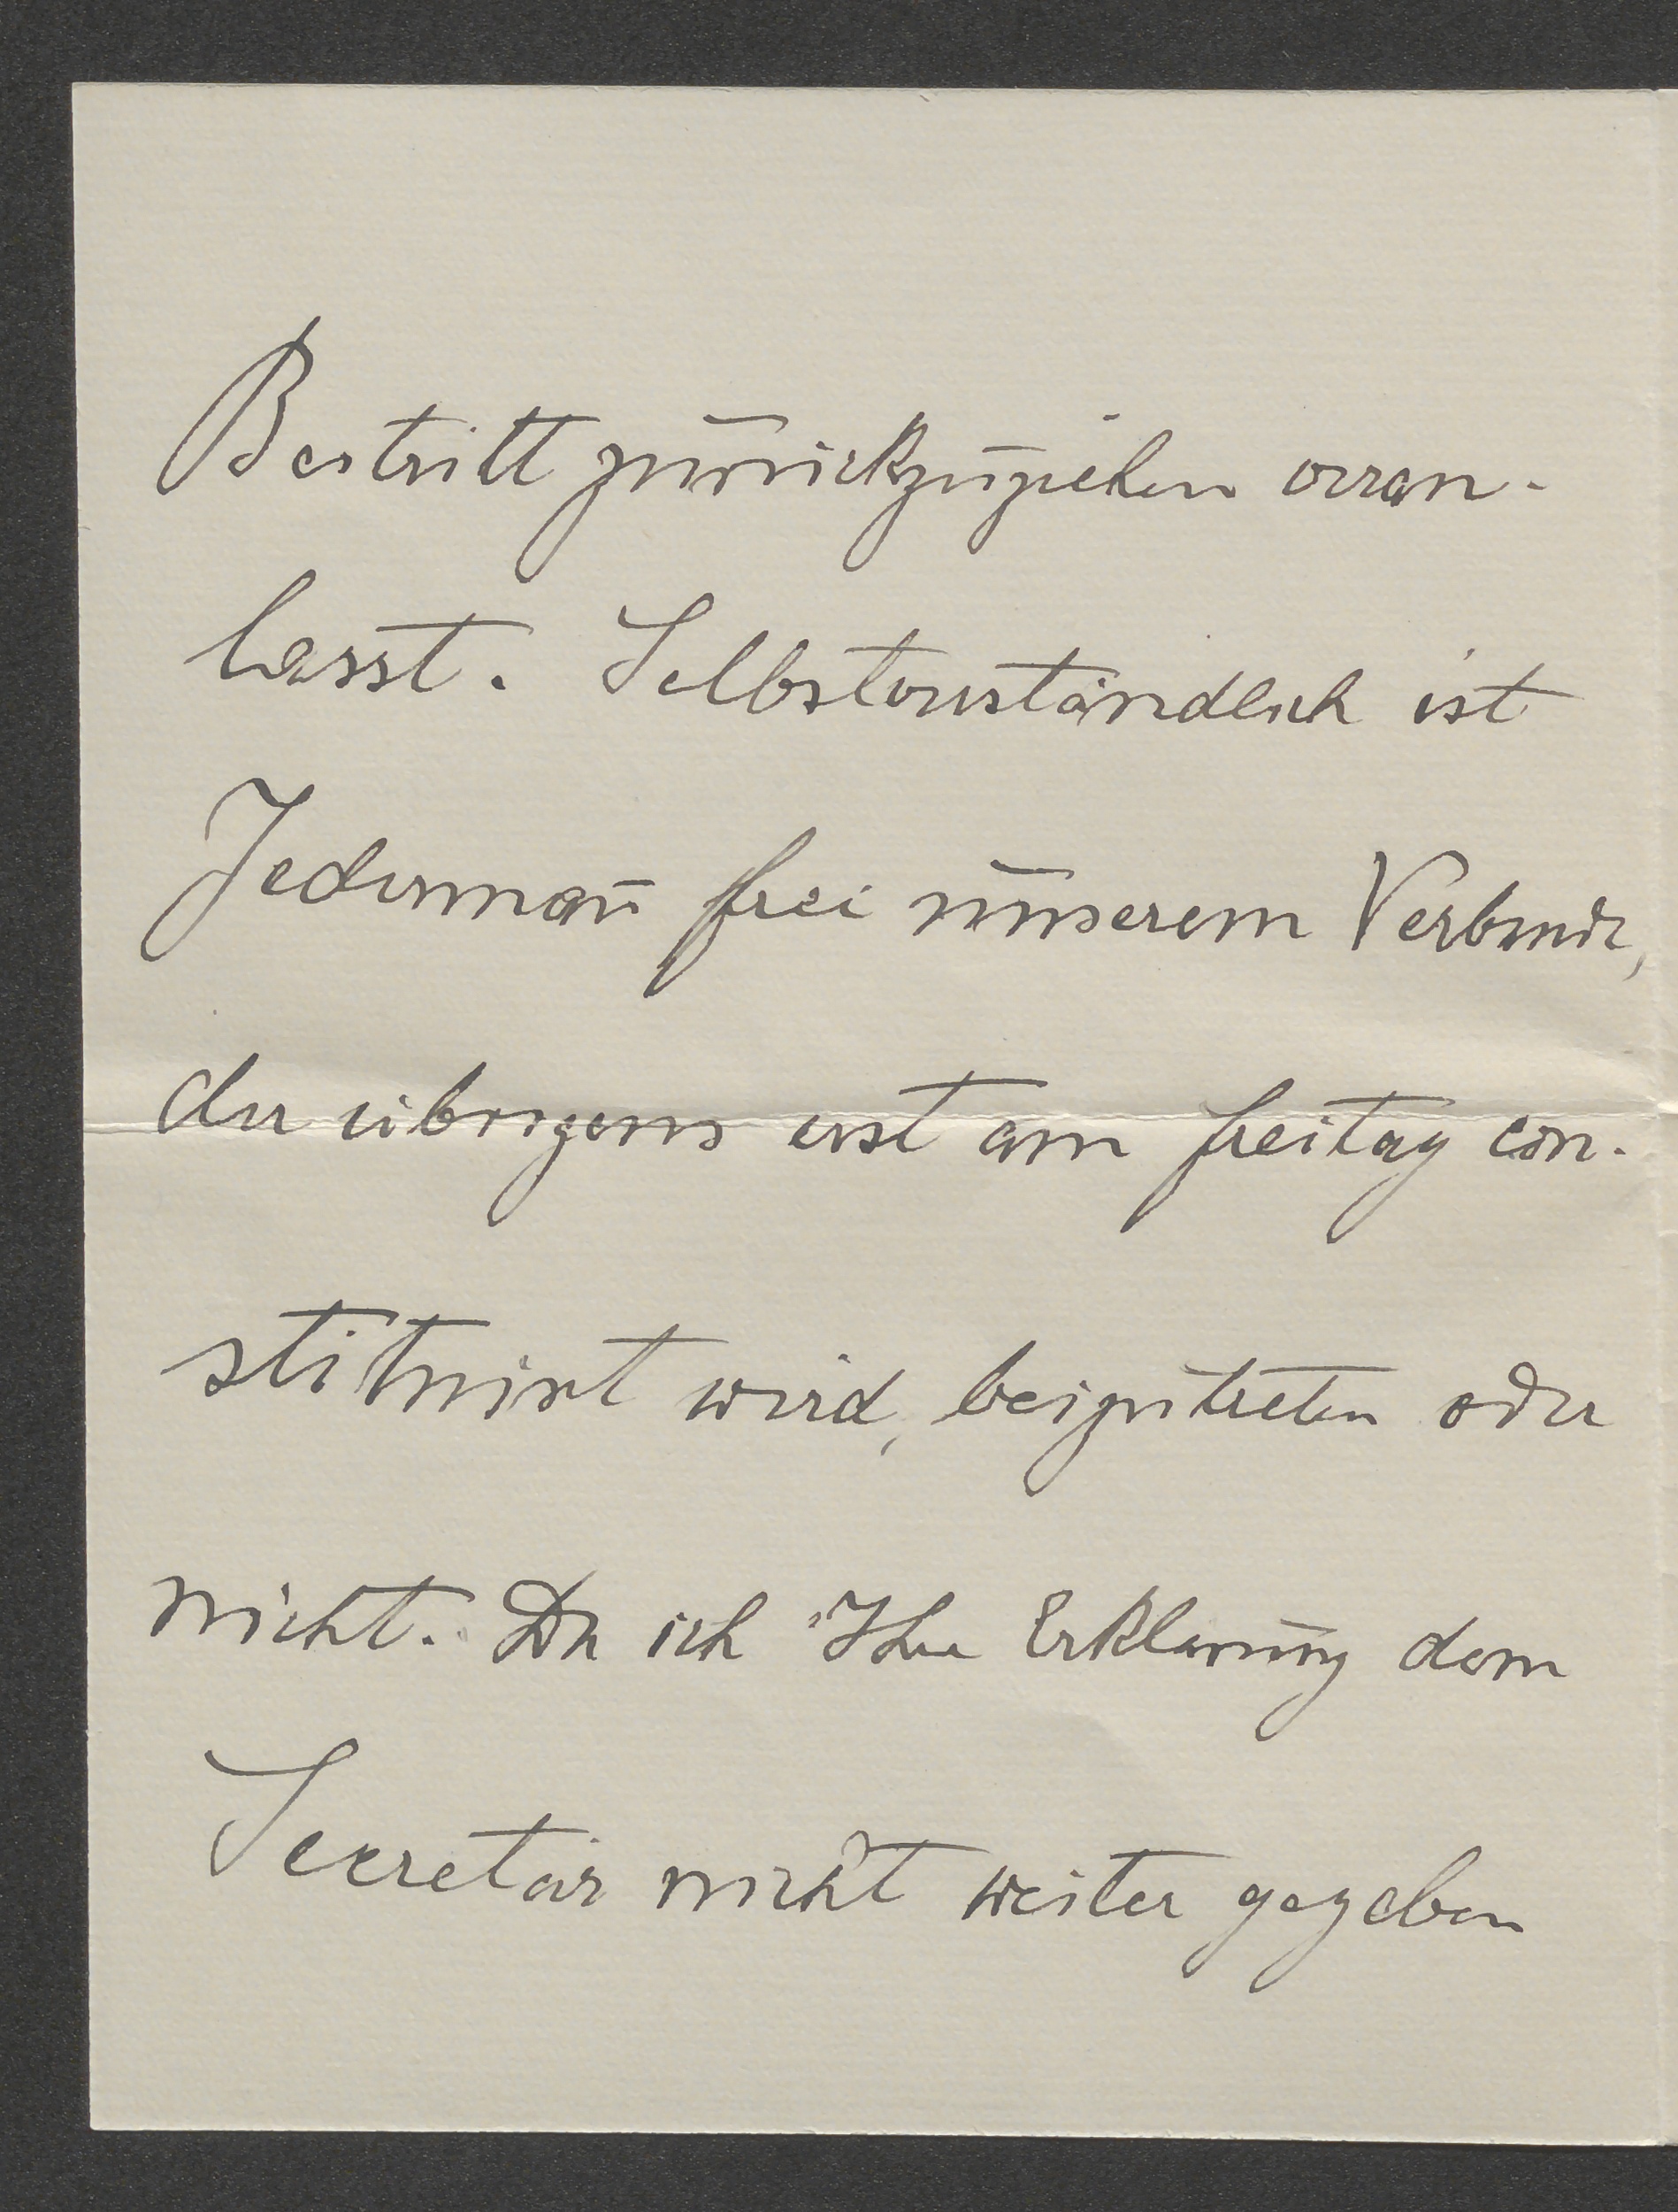 Beitritt zurückzuziehen veran-
lasst. Selbstverständlich ist
Jederman̅ frei unserem Verbande,
der übrigens erst am Freitag con-
stituirt wird, beizutreten oder
nicht. Da ich Ihre Erklärung dem
Secretär nicht weiter gegeben